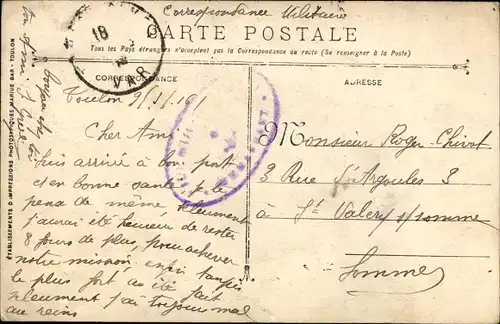 Correspondance Militaire
CARTE POSTALE
Tous les Pays étrangers n'acceptent pas la Correspondance au recto (Se renseigner à la Poste)
CORRESPONDANCE
ADRESSE
18
VAR
Toulon 9/3/191
Cher Ami
suis arrivé à bon port
et en bonne santé, je
pense de même, seulement
j'aurai été heureux de rester
8 jours de plus, pour achever
notre mission, enfin
le plus fort as été fait
seulement j'ai toujours mal
au reins
ton Ami
Monsieur Roger Chivot
3 Rue St Argoules 3
à St Valery s/somme
Somme
ÉTABLISSEMENTS D'IMPRESSIONS PHOTOGRAPHIQUES MARIUS BAR - TOULON